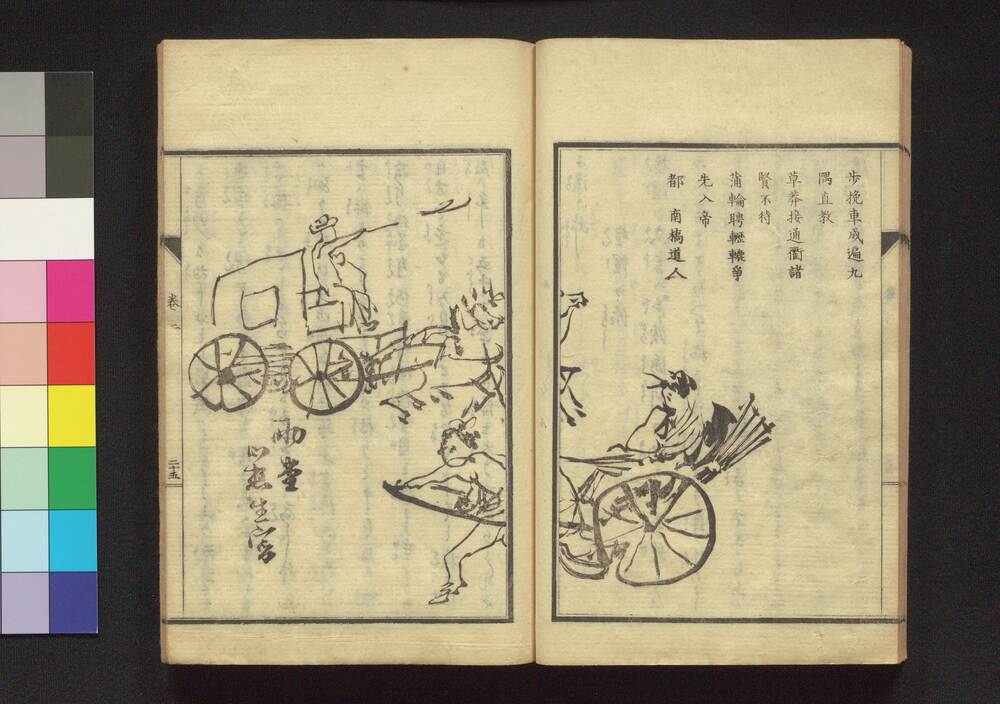 歩挽車成遍九
隅直教
草莽接通衢諸
賢不待
蒲輪聘轣轆争
先入帝
都　南橋道人
雨堂
卷二
二十五